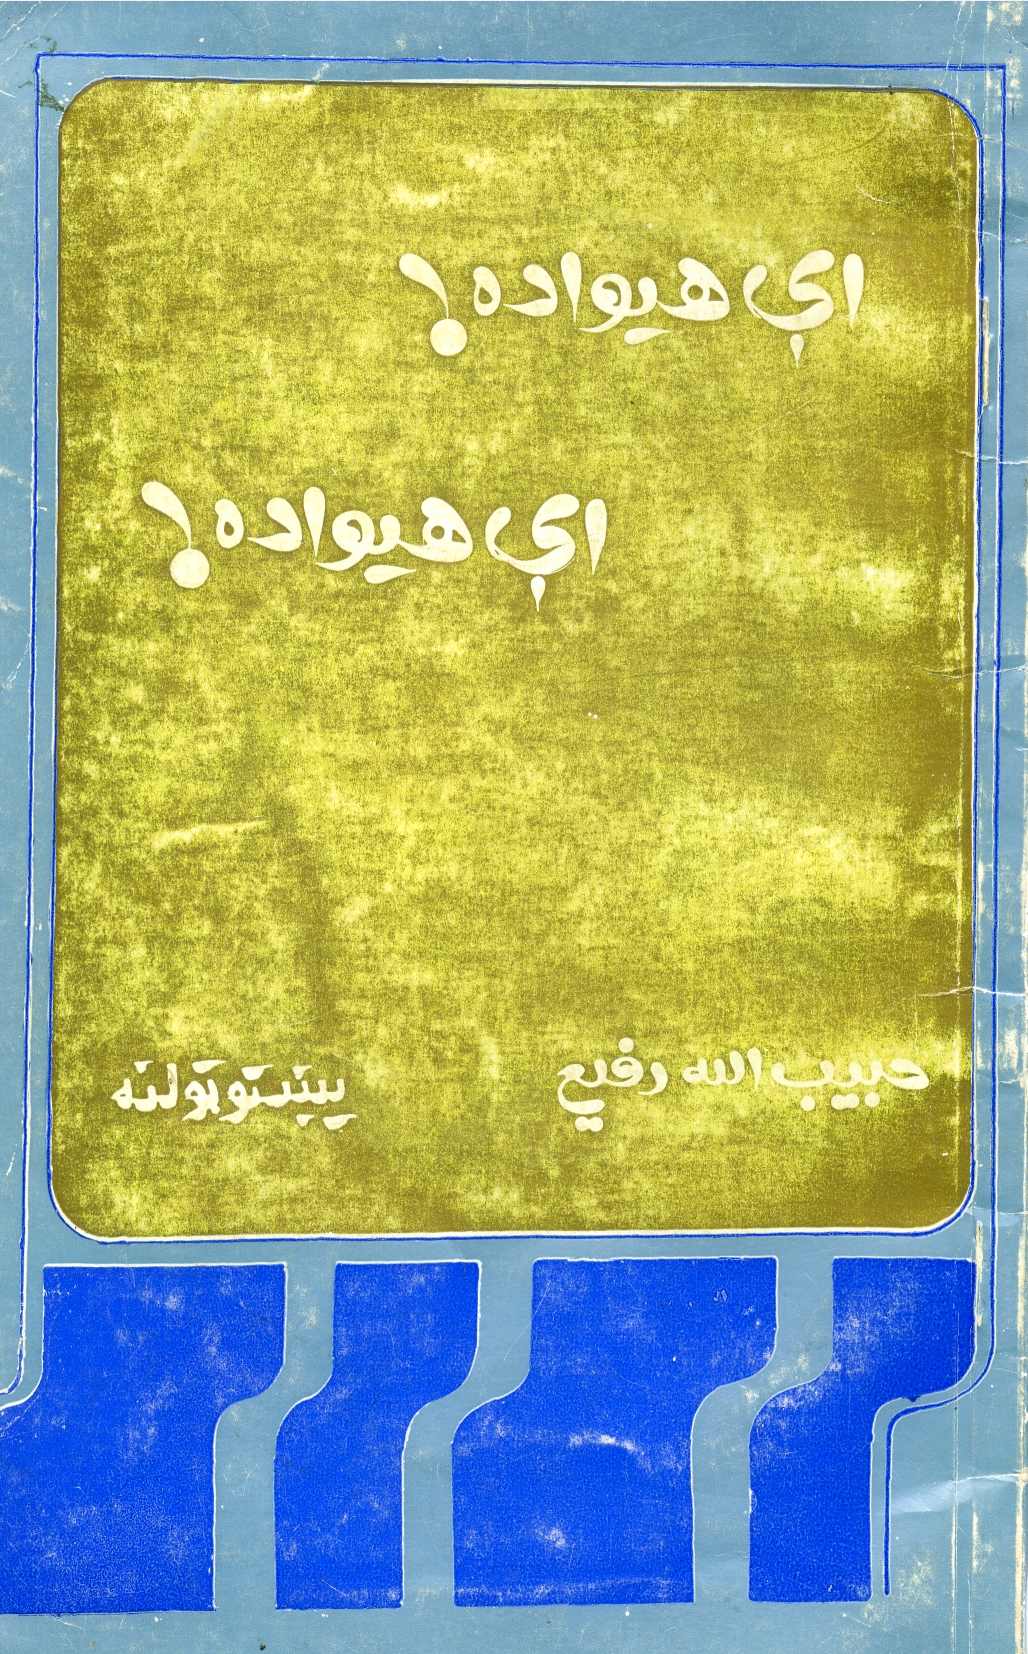 ای هیواده!
ای هیواده!
حبیب الله رفیع
پښتو ټولنه